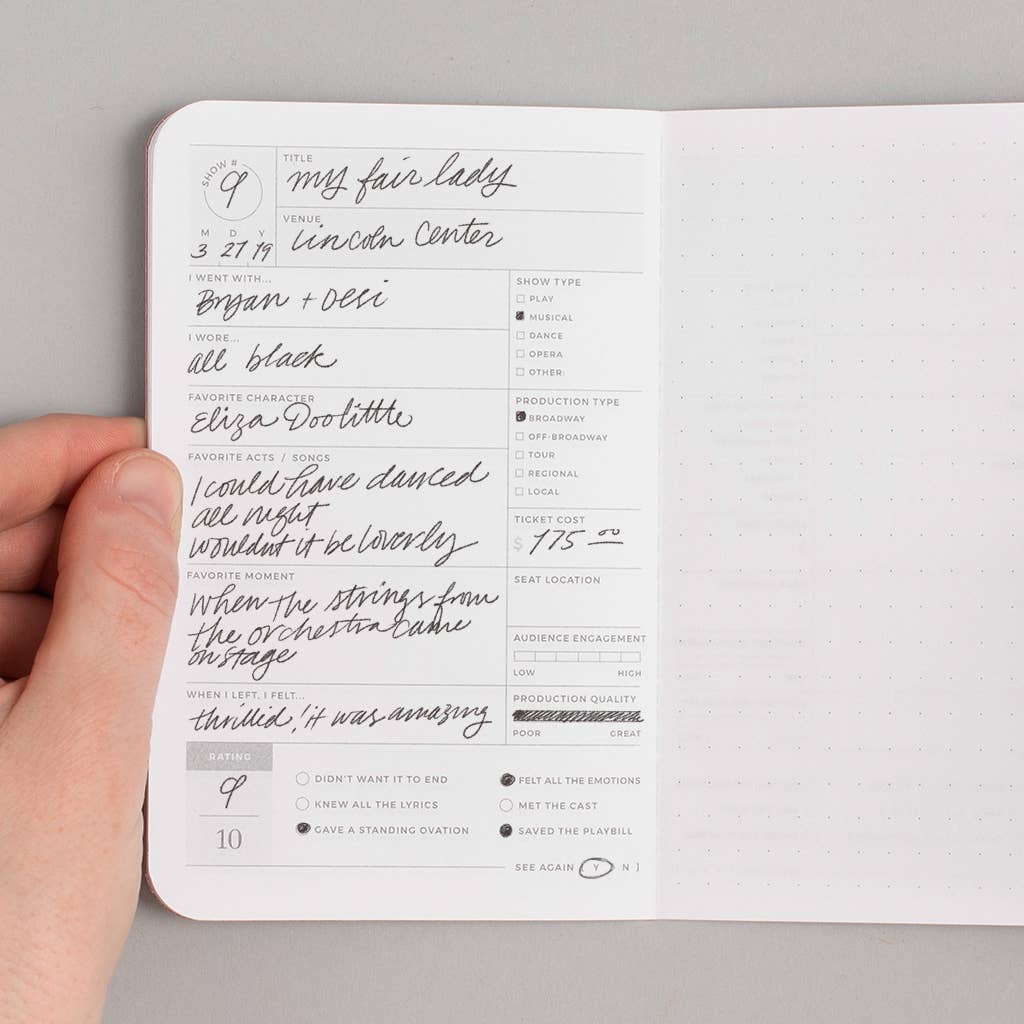 SHOW #
9
M D Y
3 27 19
TITLE
my fair lady
VENUE
Lincoln Center
I WENT WITH...
Bryan + Desi
I WORE...
all black
FAVORITE CHARACTER
Eliza Doolittle
FAVORITE ACTS / SONGS
I could have danced
all night
wouldnt it be loverly
FAVORITE MOMENT
When the strings from
the orchestra came
on stage
WHEN I LEFT, I FELT...
thrillid! it was amazing
SHOW TYPE
PLAY
MUSICAL
DANCE
OPERA
OTHER:
PRODUCTION TYPE
BROADWAY
OFF-BROADWAY
TOUR
REGIONAL
LOCAL
TICKET COST
$ 175 00
SEAT LOCATION
AUDIENCE ENGAGEMENT
LOW HIGH
PRODUCTION QUALITY
POOR GREAT
RATING
9
10
DIDN'T WANT IT TO END
KNEW ALL THE LYRICS
GAVE A STANDING OVATION
FELT ALL THE EMOTIONS
MET THE CAST
SAVED THE PLAYBILL
SEE AGAIN [ Y | N ]